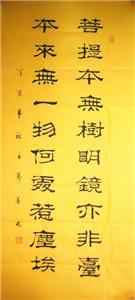 菩提本無樹明鏡亦非臺
本來無一物何處惹塵埃
丁酉年秋